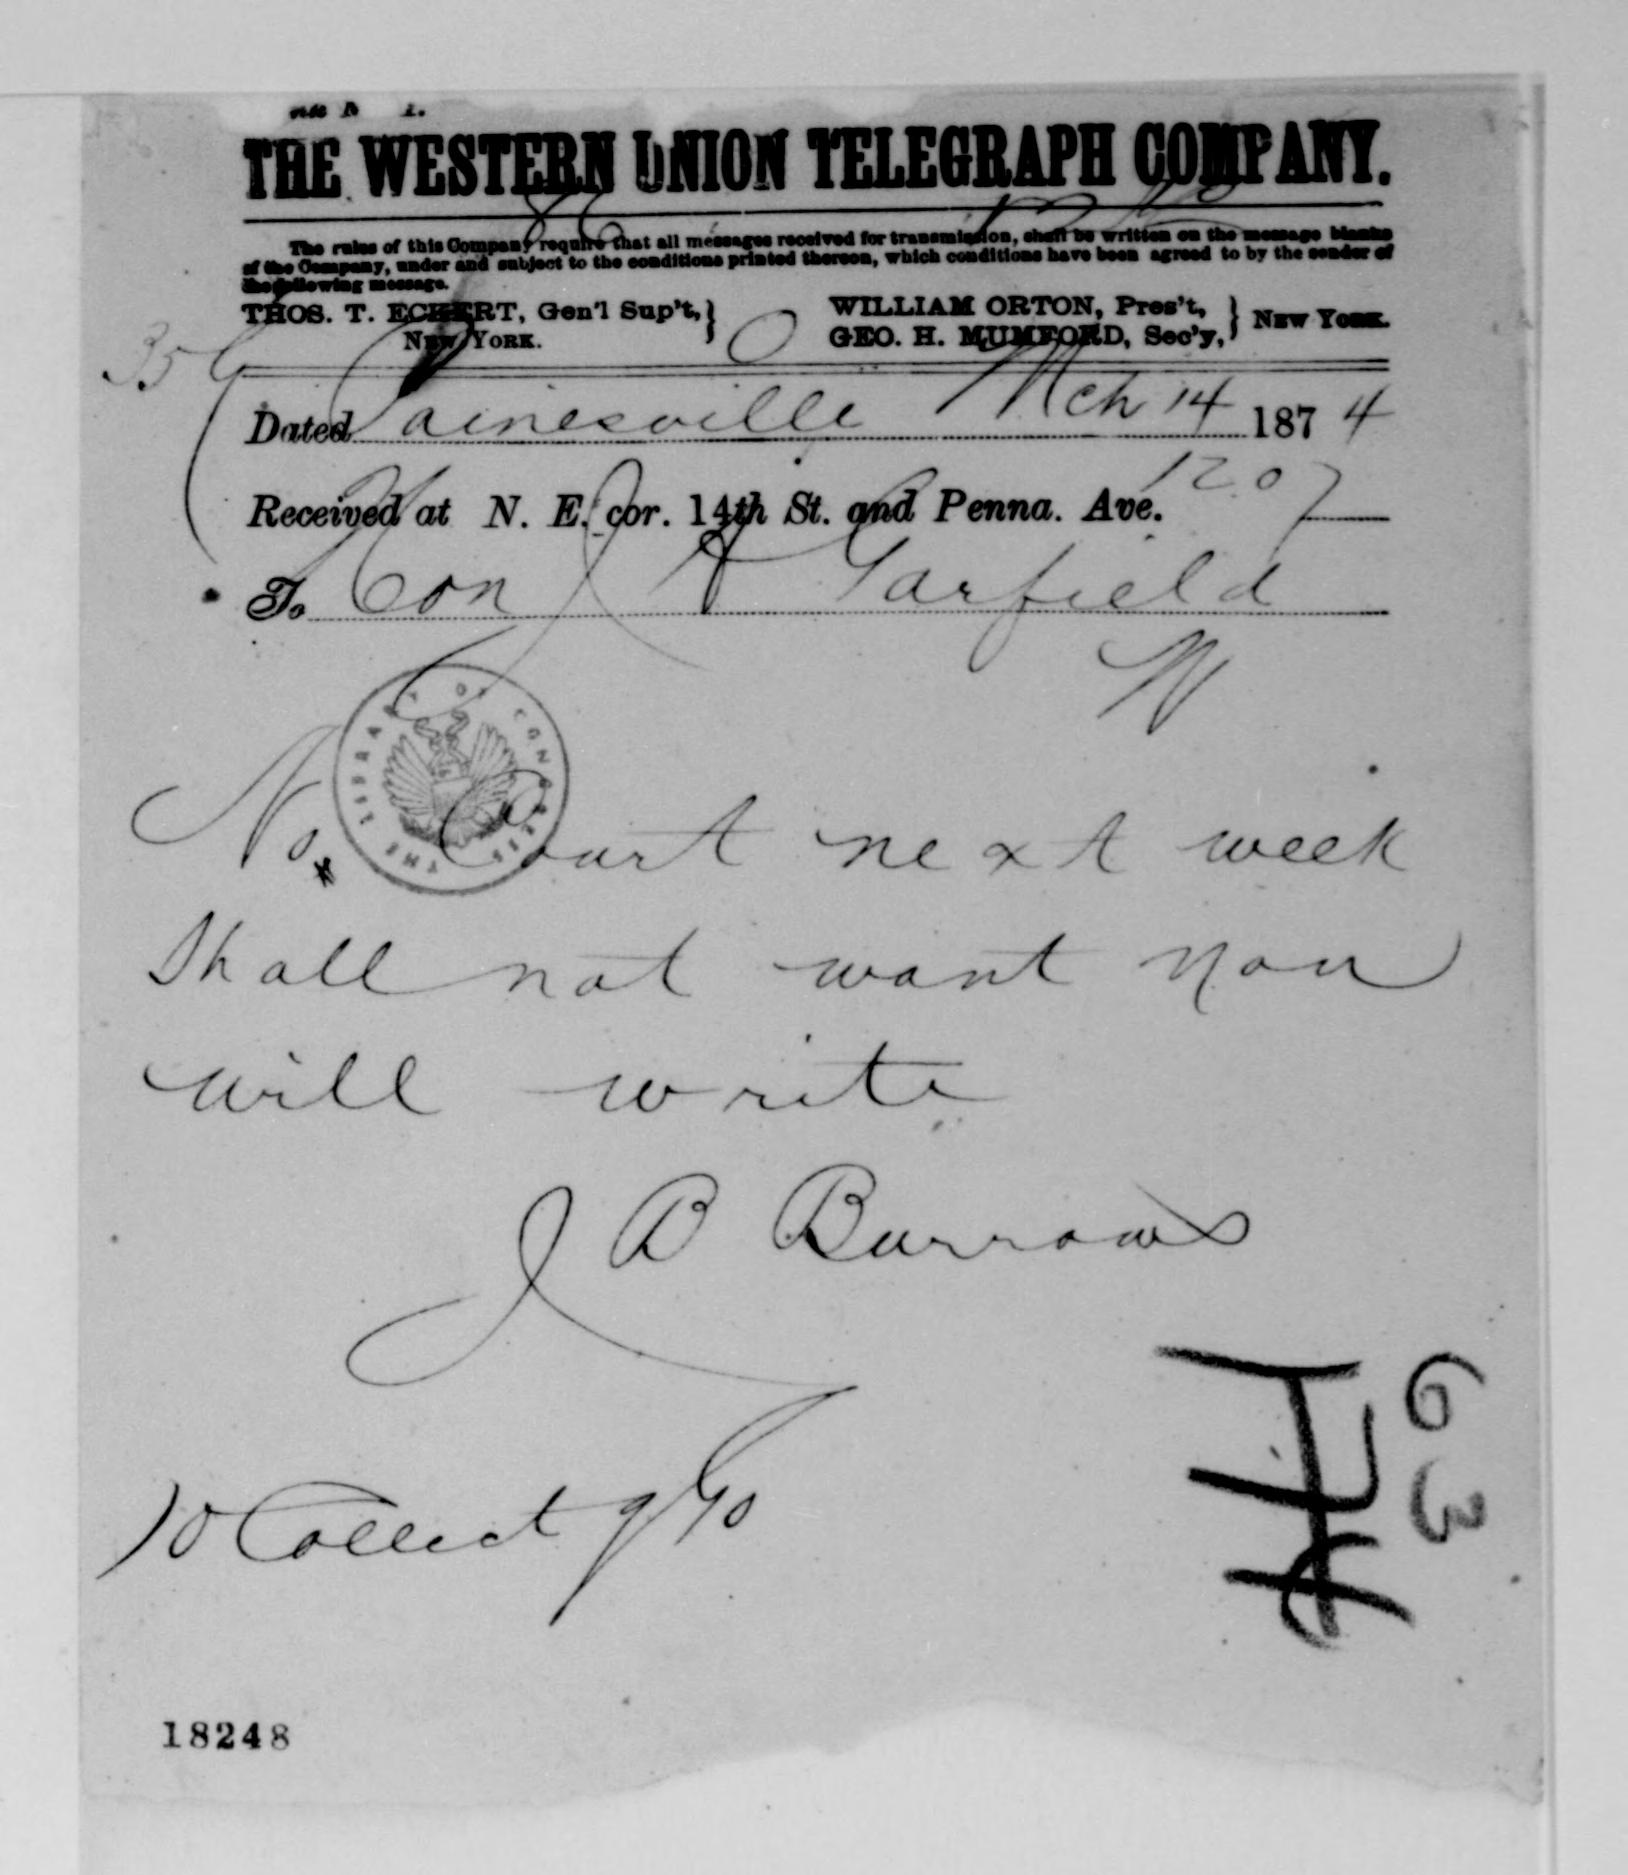 THE WESTERN UNION TELEGRAPH COMPANY.
The rules of this Company require that all messages received for transmission, shall be written on the message blanks
of the Company, under and subject to the conditions printed thereon, which conditions have been agreed to by the sender of
the following message.
THOS. T. ECKERT, Gen'l Sup't, NEW YORK.
WILLIAM ORTON, Pres't,
GEO. H. MUMFORD, Sec'y, NEW YORK.
Dated Painesville Mch 14 1874
Received at N. E. cor. 14th St. and Penna. Ave. 1207
To Hon J A Garfield
W
THE LIBRARY OF CONGRESS
No Court next week
Shall not want you
will write
J B Burrows
10 Collect
63
18248